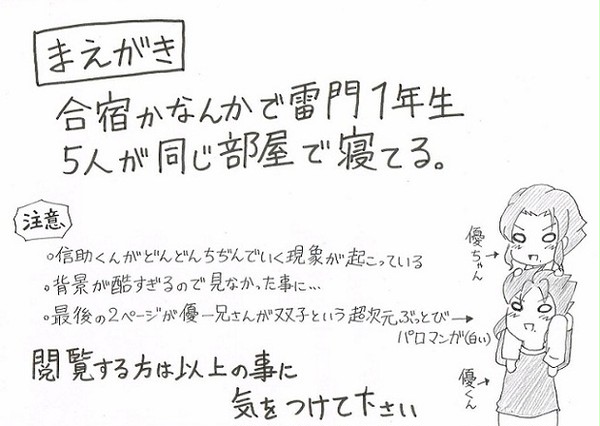 まえがき
合宿かなんかで雷門1年生
5人が同じ部屋で寝てる。
注意
信助くんがどんどんちぢんでいく現象が起こっている
背景が酷すぎるので見なかった事に…
最後の2ページが優一兄さんが双子という超次元ぶっとび→
パロマンガ(白い)
閲覧する方は以上の事に
気をつけて下さい
優ちゃん
優くん